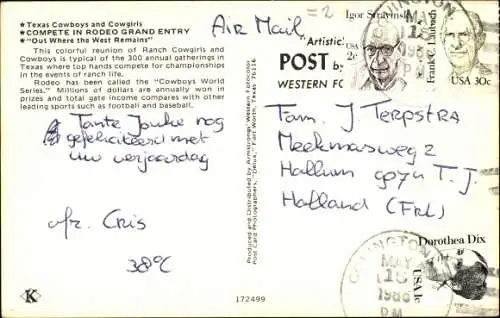 ★ Texas Cowboys and Cowgirls
★ COMPETE IN RODEO GRAND ENTRY
★ "Out Where the West Remains"
This colorful reunion of Ranch Cowgirls and
Cowboys is typical of the 300 annual gatherings in
Texas where top hands compete for championships
in the events of ranch life.
Rodeo has been called the "Cowboys World
Series." Millions of dollars are annually won in
prizes and total gate income compares with other
leading sports such as football and baseball.
Tante Jouke nog
gefeliciteerd met
uw verjaardag
afz. Cris
38°C
K
Produced and Distributed by Armstrongs' Western Fotocolor
Post Card Photographers, "Delux," Fort Worth, Texas 76116
172499
Air Mail
=2
Artistic
POST
WESTERN FO
Igor Stravinsky
USA
2c
Frank C. Laubach
USA 30c
Fam. J Terpstra
Meekmasweg 2
Hallum 9074 T.J.
Holland (Frl)
Dorothea Dix
USA 1c
COVINGTON
MAY
16
1986
PM